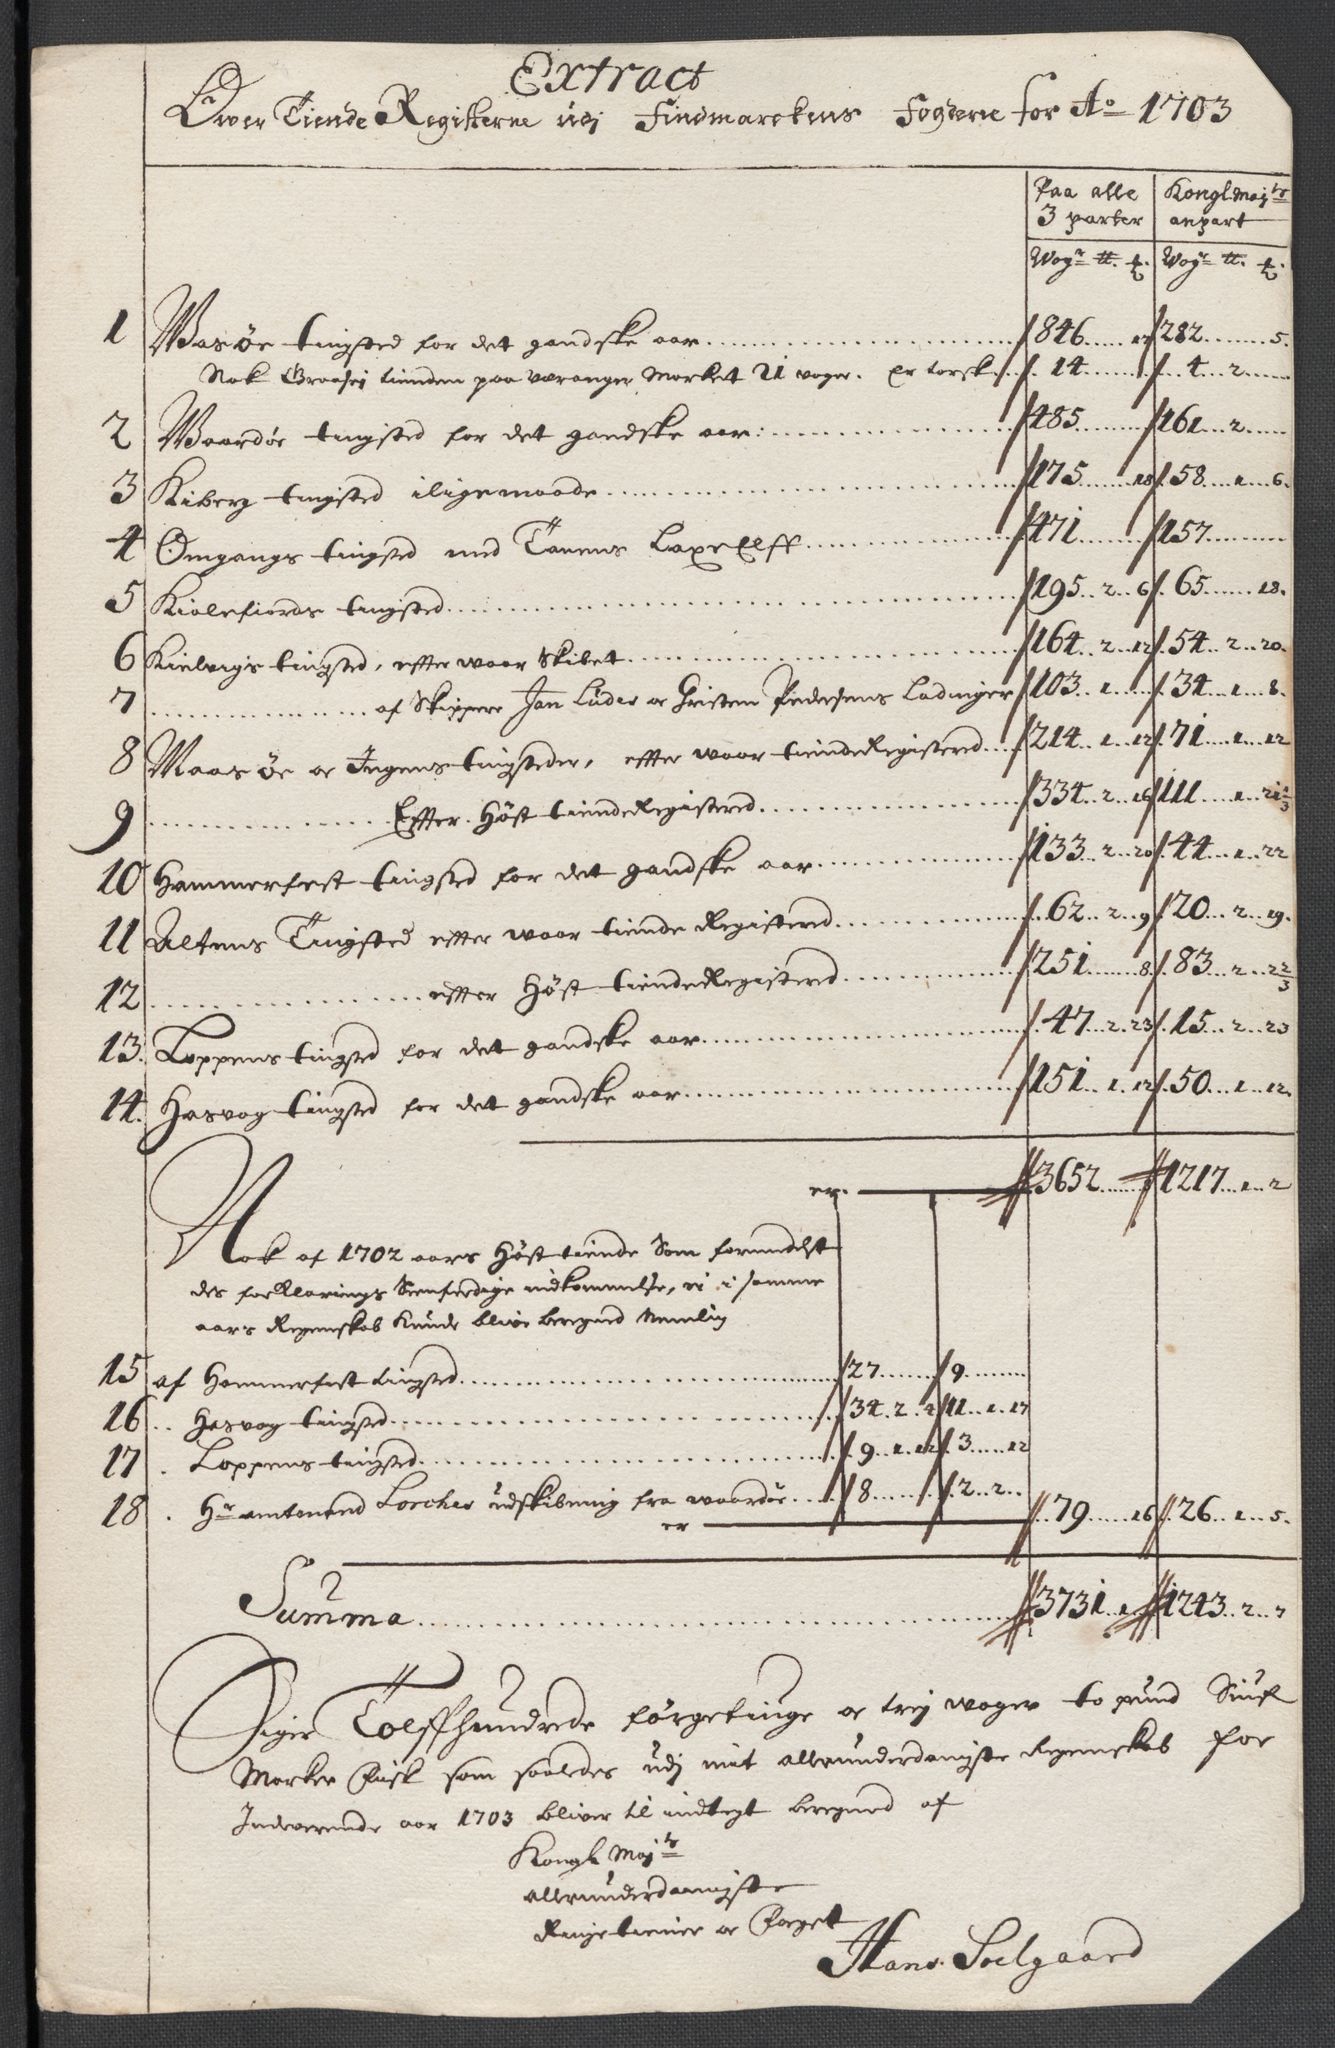 Extract
Ower Tiende Registerne udj Findmarckens Fogderie for Ao 1703
Paa alle Kongl May:ts
3 parter anpart
Wog:r ℔. ₰. Wog:r ℔. ₰.
1 Wasøe tingsted for det gandske aar 846 .. 15 282 .. 5.
Nok Graasej tienden paa waranger Market 21 woger. er torsk 14 4 .. 2
2 Waardøe tingsted for det gandske aar: 485 161 .. 2
3 Kiberg tingsted iligemaade 175 .. 18 58 .. 1 .. 6.
4 Omgangs tingsted med Tanens LaxeElff 471 157
5 Kiølefiords tingsted 195 .. 2 .. 6 65 .. 18.
6 Kielwigs tingsted, effter waar Skibet 164 .. 2 .. 12 54 .. 2 .. 20.
7 af Skipper Jan Lüder oc Christen Pedersens Ladninger 103 .. 1 34 .. 1 .. 8.
8 Maas øe oc Ingens tingsteder, effter waar tiendeRegistered 214 .. 1 .. 12 71 .. 1 .. 12
9 Effter Høst tiendeRegistered 334 .. 2 .. 16 111 .. 1 .. 21 1/3
10 Hammerfest tingsted for det gandske aar 133 .. 2 .. 20 44 .. 1 .. 22
11 Altens Tingsted effter waar tiende Registered 62 .. 2 .. 9 20 .. 2 .. 19.
12 effter Høst tiendeRegistered 251 .. 8 83 .. 2 .. 2 2/3
13. Loppens tingsted for det gandske aar 47 .. 2 .. 23 15 .. 2 .. 23
14. Hasvog tingsted for det gandske aar 151 .. 1 .. 12 50 .. 1 .. 12.
er. 3652 1217 .. 1 .. 2
Nok af 1702 aars Høst tiende Som formedelst
des forklarings Seenferdige indkommelse, ei i samme
aars Regenskab Kunde blive beregned Nemlig
15 af Hammerfest tingsted 27 9
16 .. Hasvog tingsted 34 .. 2 .. 4 11 .. 1 .. 17
17 . Loppens tingsted 9 .. 1 .. 12 3 .. 12
18 . Hr amtmand Lorches udskibning fra waardøe 8 2 .. 2
er 79 .. 16 26 .. 1 .. 5.
Summa 3731 .. 1 1243 .. 2 .. 7
Siger Tolffhundrede förgetiuge oc trej woger to pund Siuf
Marker Fisk som saaledes udj mit allerunderdanigste Regenskab for
Indeverende aar 1703 bliver til indtegt beregned af
Kongl May:ts
allerunderdanigste
tiener oc Foget
Hans Soelgaard